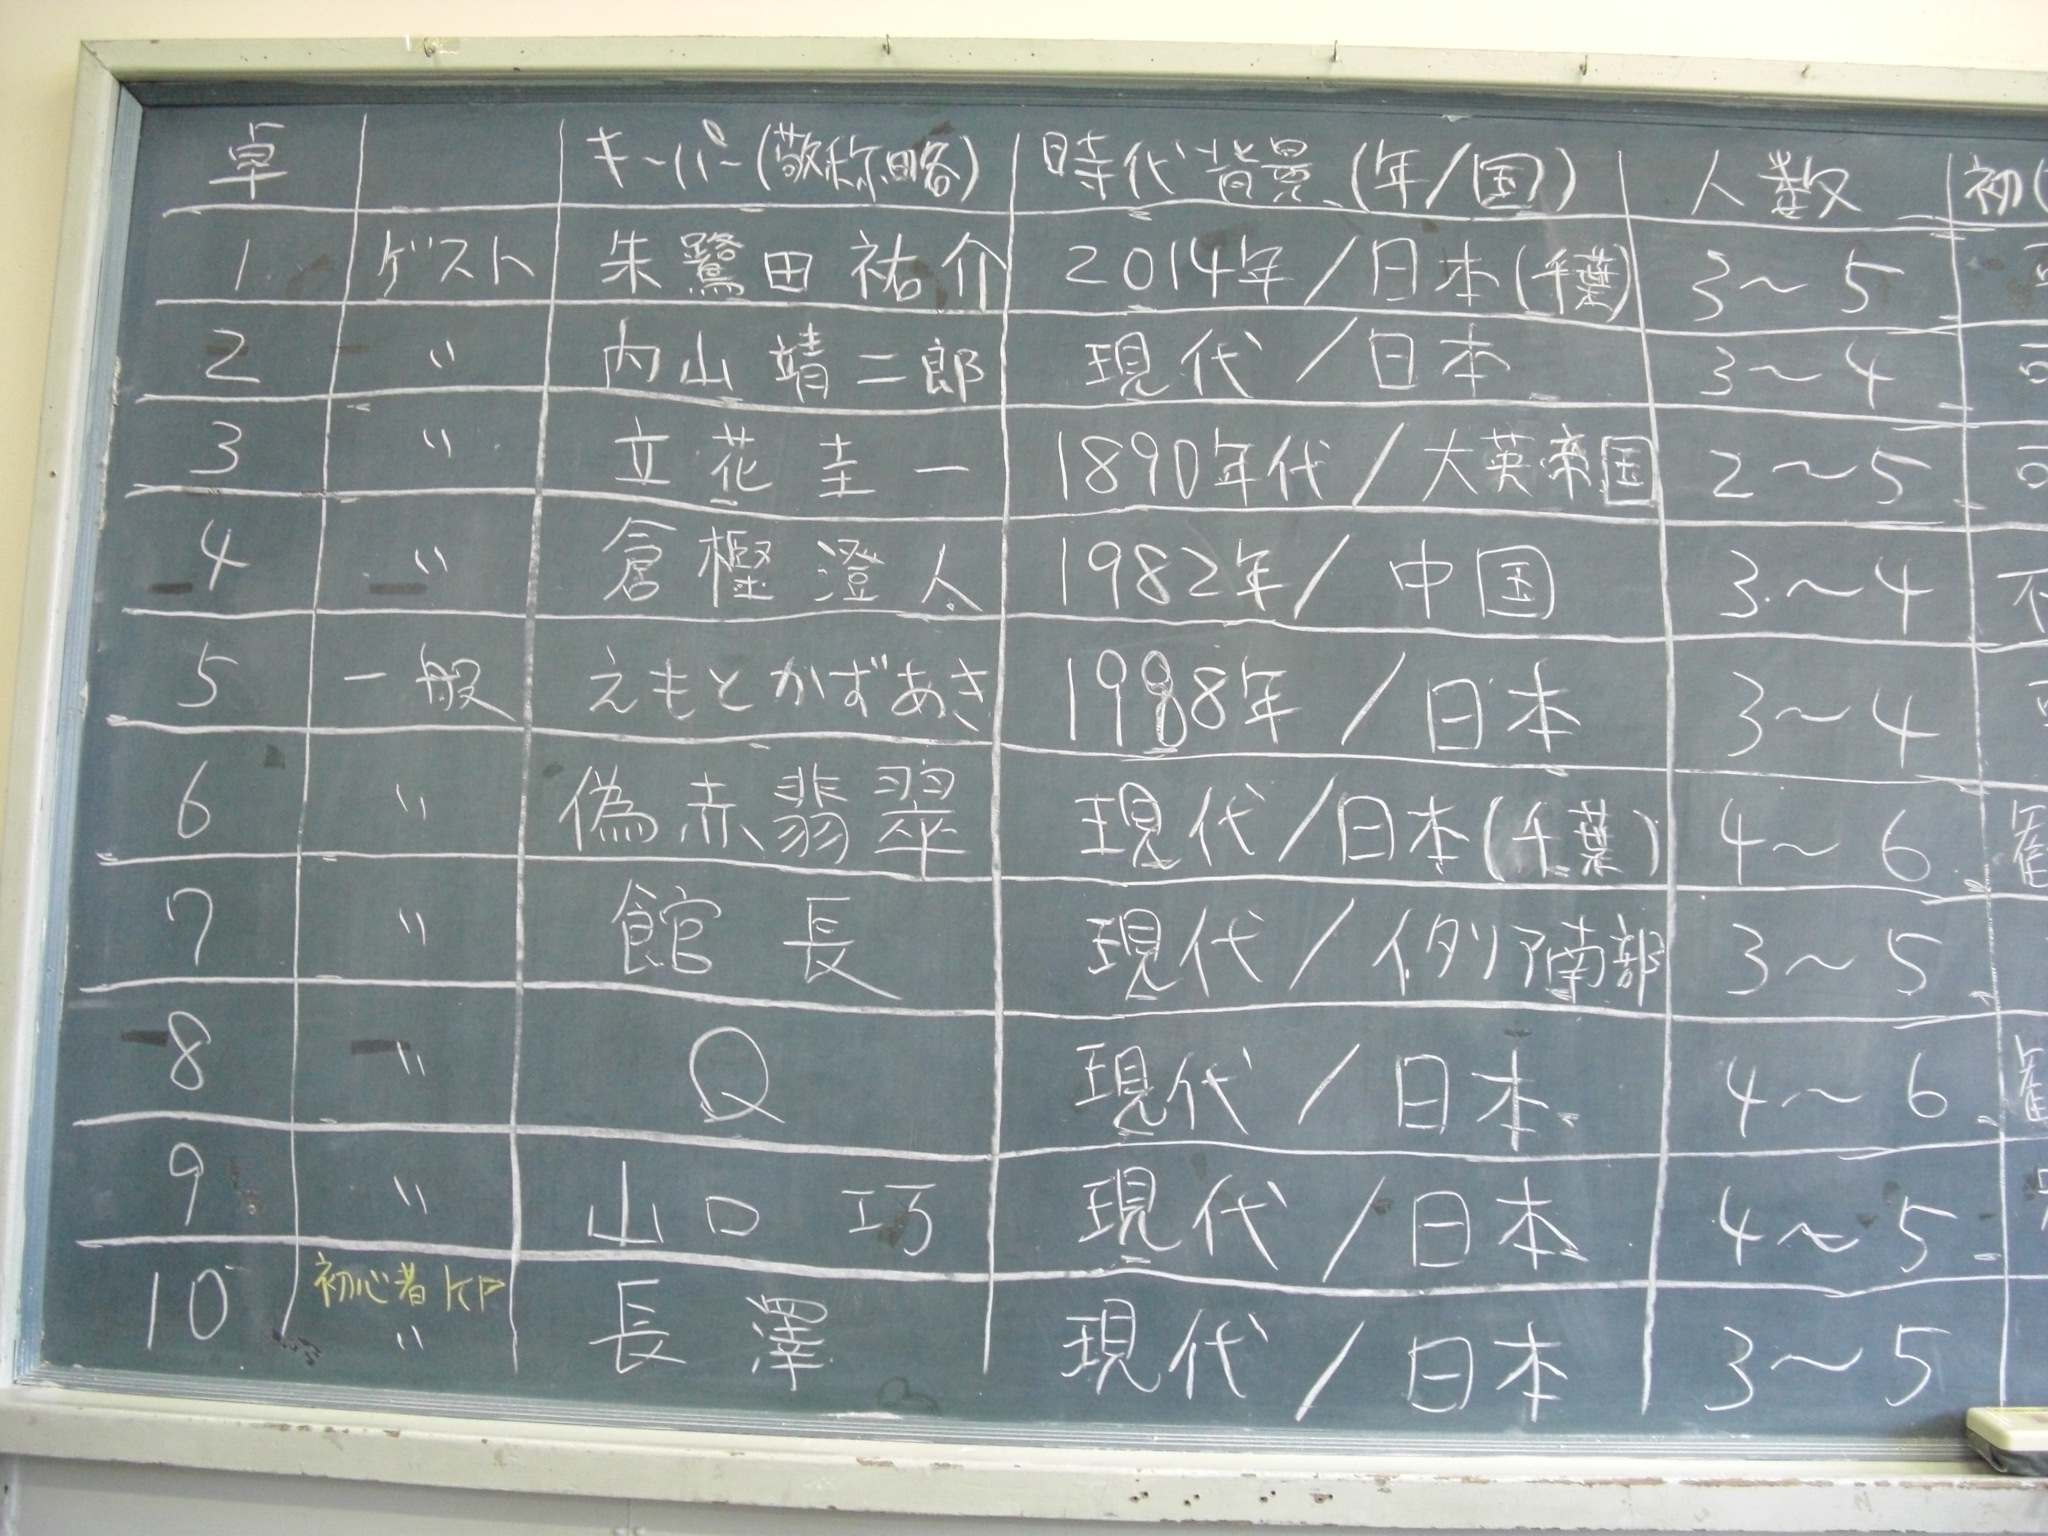 卓 キーパー(敬称略) 時代背景(年/国) 人数 初(
1 ゲスト 朱鷺田祐介 2014年/日本(千葉) 3〜5 可
2 〃 内山靖二郎 現代/日本 3〜4 可
3 〃 立花圭一 1890年代/大英帝国 2〜5 可
4 〃 倉樫澄人 1982年/中国 3〜4 不
5 一般 えもとかずあき 1988年/日本 3〜4
6 〃 偽赤翡翠 現代/日本(千葉) 4〜6
7 〃 館長 現代/イタリア南部 3〜5
8 〃 Q 現代/日本 4〜6
9 〃 山口 巧 現代/日本 4〜5
10 初心者KP 〃 長澤 現代/日本 3〜5